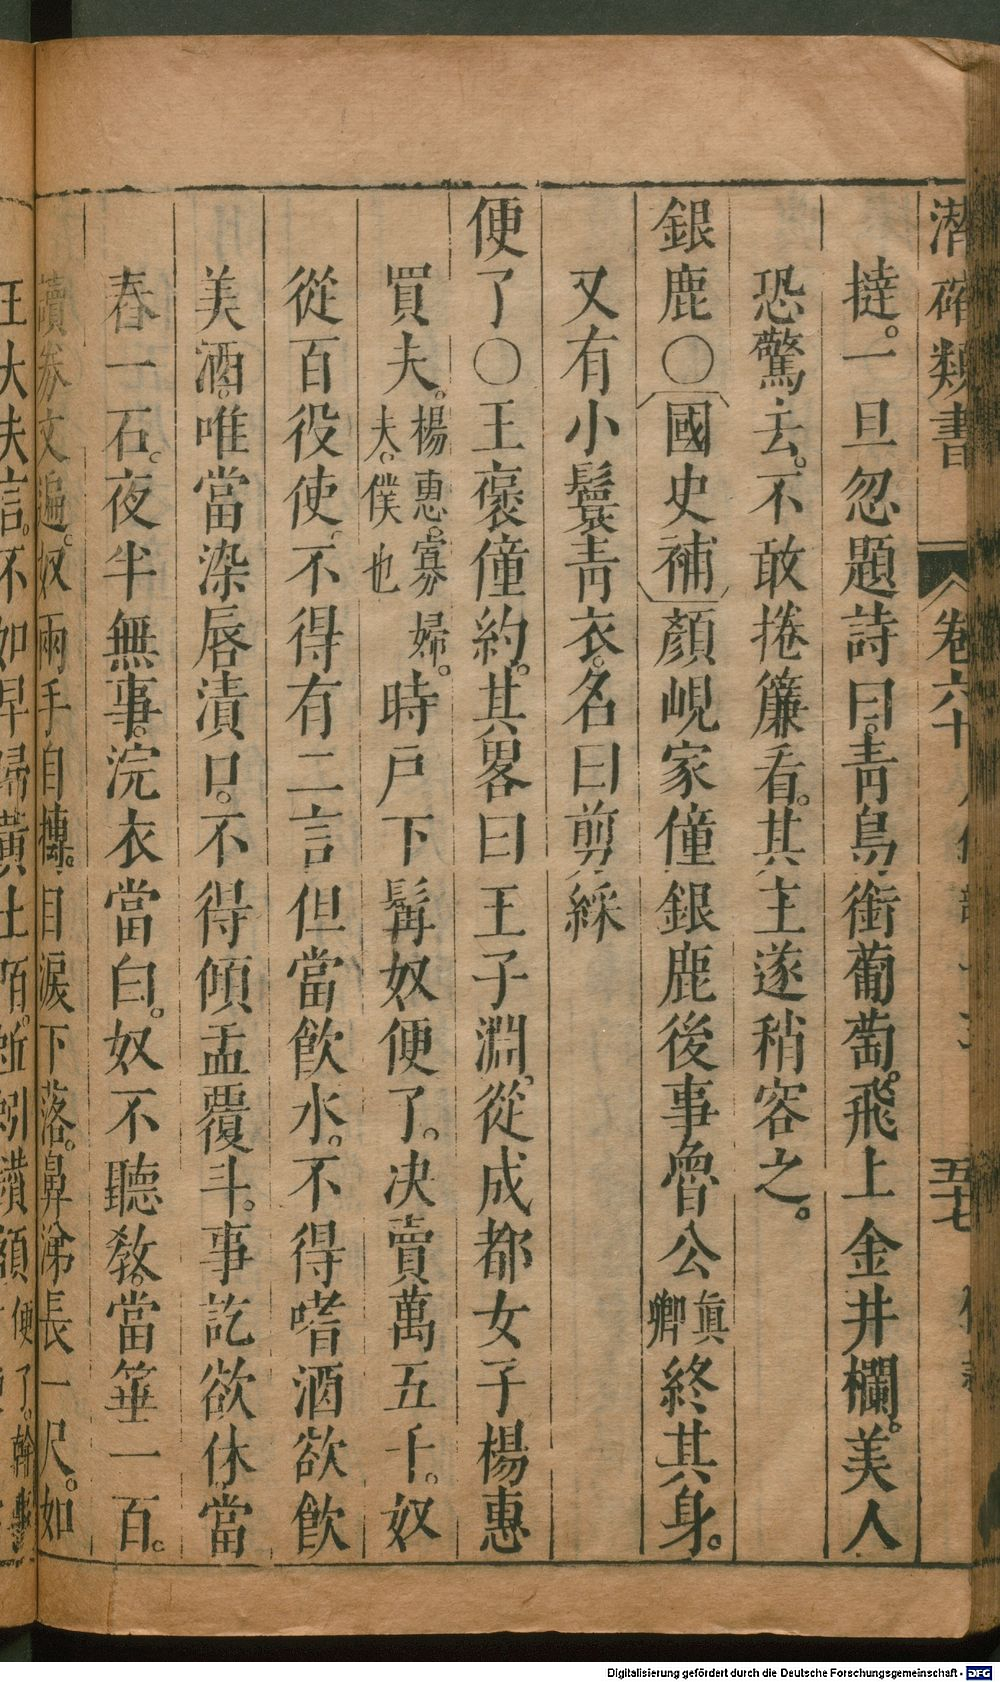 潛確類書 卷六十
撻。一旦忽題詩曰。青鳥銜葡萄。飛上金井欄。美人
恐驚去。不敢捲簾看。其主遂稍容之。
銀鹿〇國史補顏峴家僮銀鹿後事魯公真卿終其身。
又有小鬟青衣。名曰剪綵
便了〇王襃僮約。其畧曰王子淵。從成都女子楊惠
買夫。楊惠。寡婦。夫。僕也時戶下髯奴便了。決賣萬五千。奴
從百役使。不得有二言但當飲水。不得嗜酒欲飲
美酒。唯當染唇漬口。不得傾盂覆斗。事訖欲休。當
舂一石。夜半無事。浣衣當白。奴不聽教。當箠一百。
讀券文遍。奴兩手自搏。目淚下落。鼻涕長一尺。如
王大夫言。不如早歸黃土陌。蚯蚓鑽額便了。
Digitalisierung gefördert durch die Deutsche Forschungsgemeinschaft - DFG